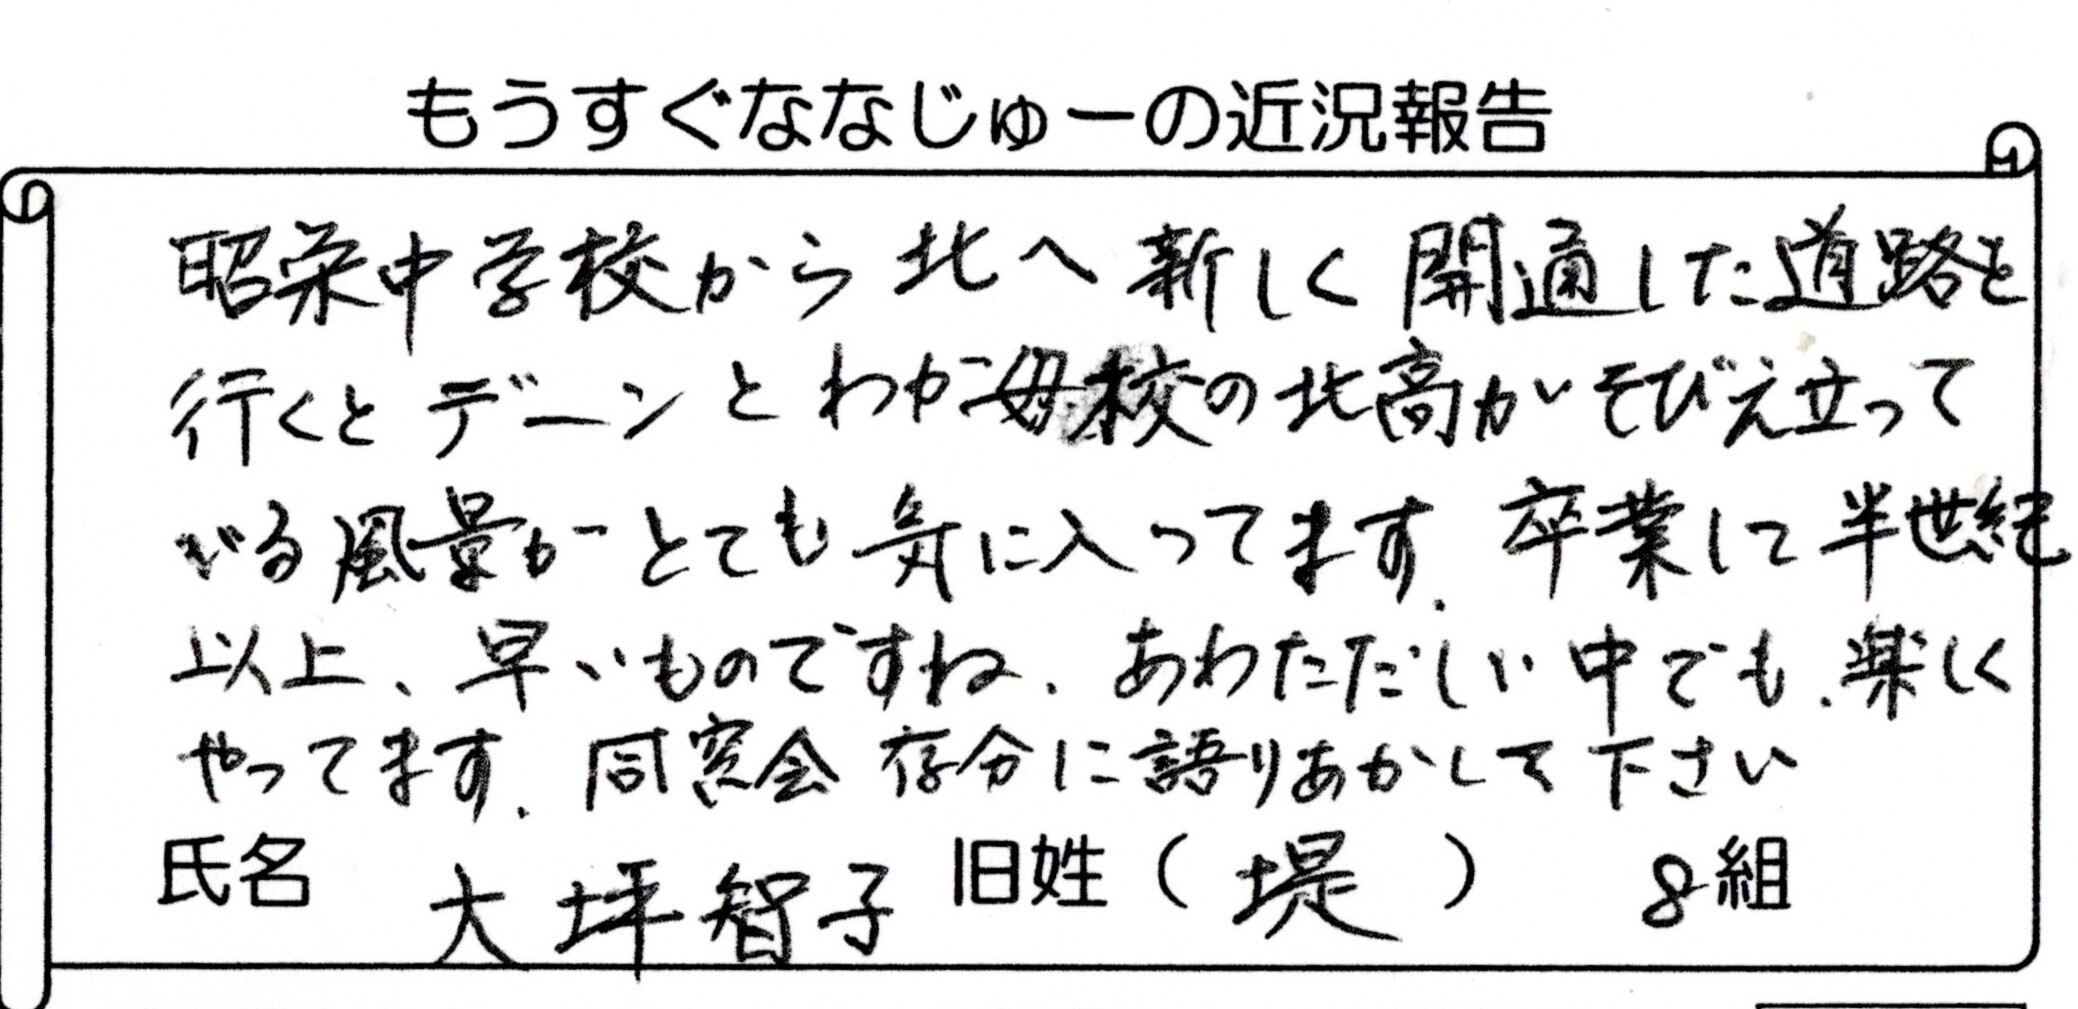 もうすぐななじゅーの近況報告
昭栄中学校から北へ新しく開通した道路を
行くとデーンとわが母校の北高がそびえ立って
いる風景がとても気に入ってます.卒業して半世紀
以上、早いものですね.あわただしい中でも.楽しく
やってます.同窓会 存分に語りあかして下さい
氏名 大坪智子 旧姓(堤) 8組